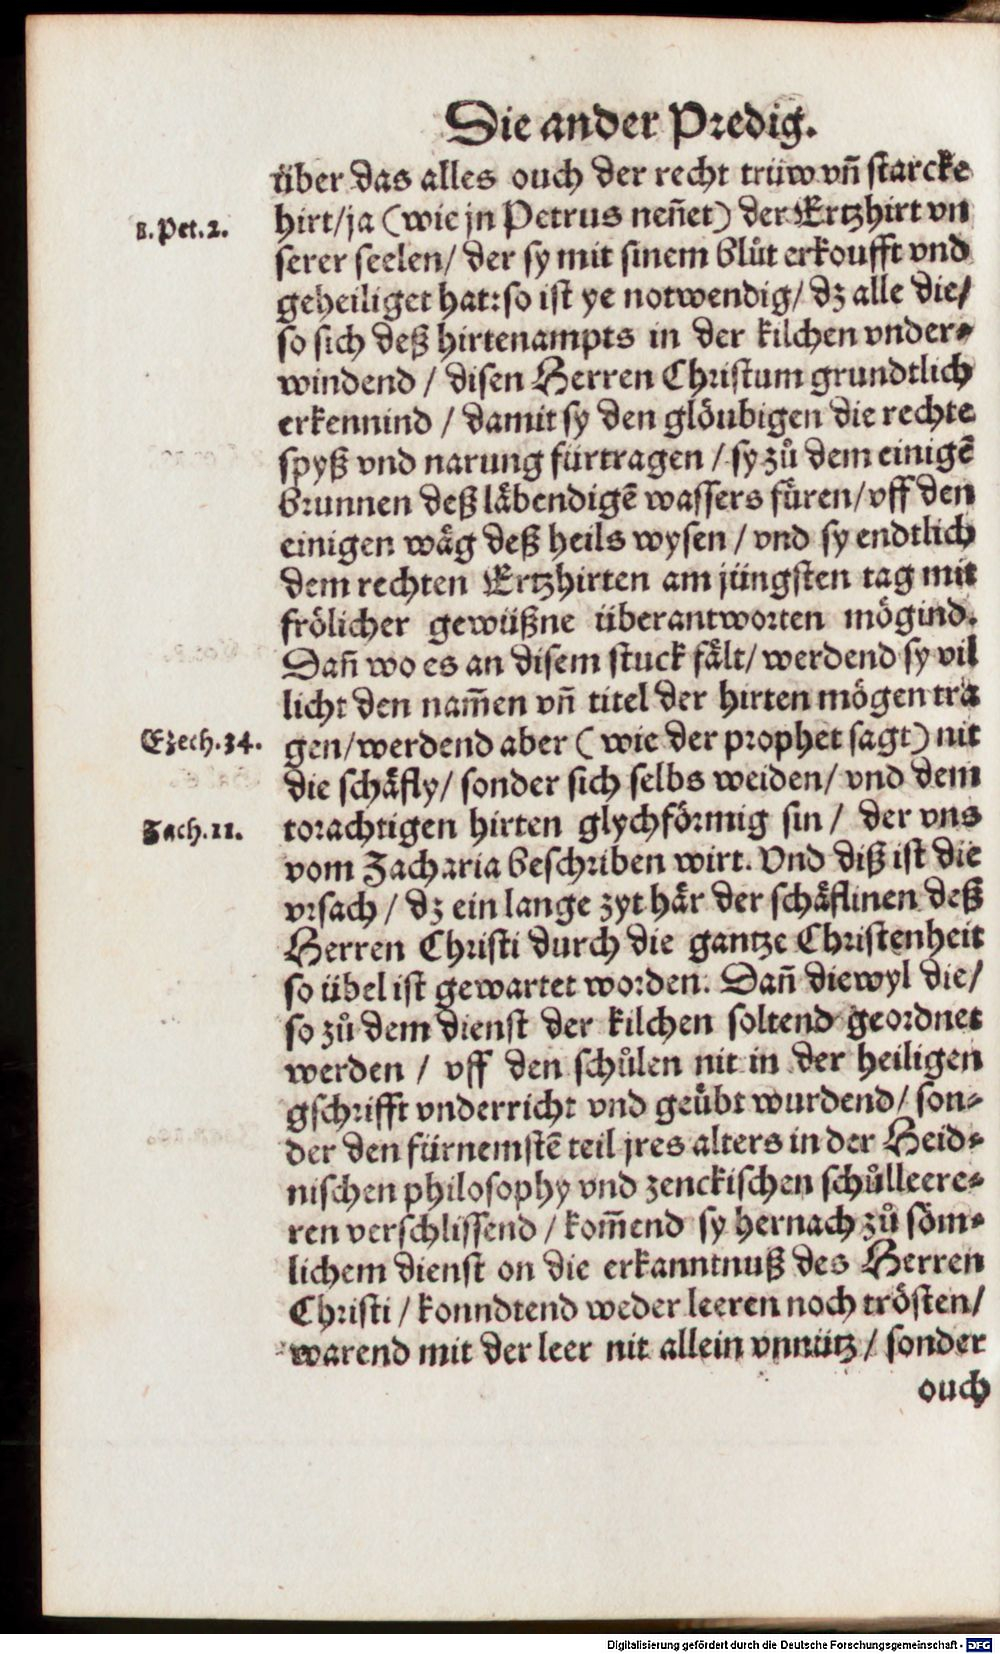 Die ander Predig.
über das alles ouch der recht trüw vñ starcke
1. Pet. 2.
hirt/ja (wie jn Petrus neñet) der Ertzhirt vn
serer seelen/ der sy mit sinem blůt erkoufft vnd
geheiliget hat: so ist ye notwendig/ dz alle die/
so sich deß hirtenampts in der kilchen vnder⸗
windend / disen Herren Christum grundtlich
erkennind / damit sy den glöubigen die rechte
spyß vnd narung fürtragen / sy zů dem einigē
brunnen deß läbendigē wassers füren/ vff den
einigen wäg deß heils wysen / vnd sy endtlich
dem rechten Ertzhirten am jüngsten tag mit
frölicher gewüßne überantworten mögind.
Dañ wo es an disem stuck fält/ werdend sy vil
licht den nam̃en vñ titel der hirten mögen tra
Ezech. 34.
gen/ werdend aber ( wie der prophet sagt) nit
die schäfly/ sonder sich selbs weiden/ vnd dem
Zach. 11.
torachtigen hirten glychförmig sin / der vns
vom Zacharia beschriben wirt. Vnd diß ist die
vrsach / dz ein lange zyt här der schäflinen deß
Herren Christi durch die gantze Christenheit
so übel ist gewartet worden. Dañ diewyl die/
so zů dem dienst der kilchen soltend geordnet
werden / vff den schůlen nit in der heiligen
gschrifft vnderricht vnd geübt wurdend/ son⸗
der den fürnemstē teil jres alters in der Heid⸗
nischen philosophy vnd zenckischen schůlleere⸗
ren verschlissend / kom̃end sy hernach zů söm⸗
lichem dienst on die erkanntnuß des Herren
Christi / konndtend weder leeren noch trösten/
warend mit der leer nit allein vnnütz / sonder
ouch
Digitalisierung gefördert durch die Deutsche Forschungsgemeinschaft - DFG